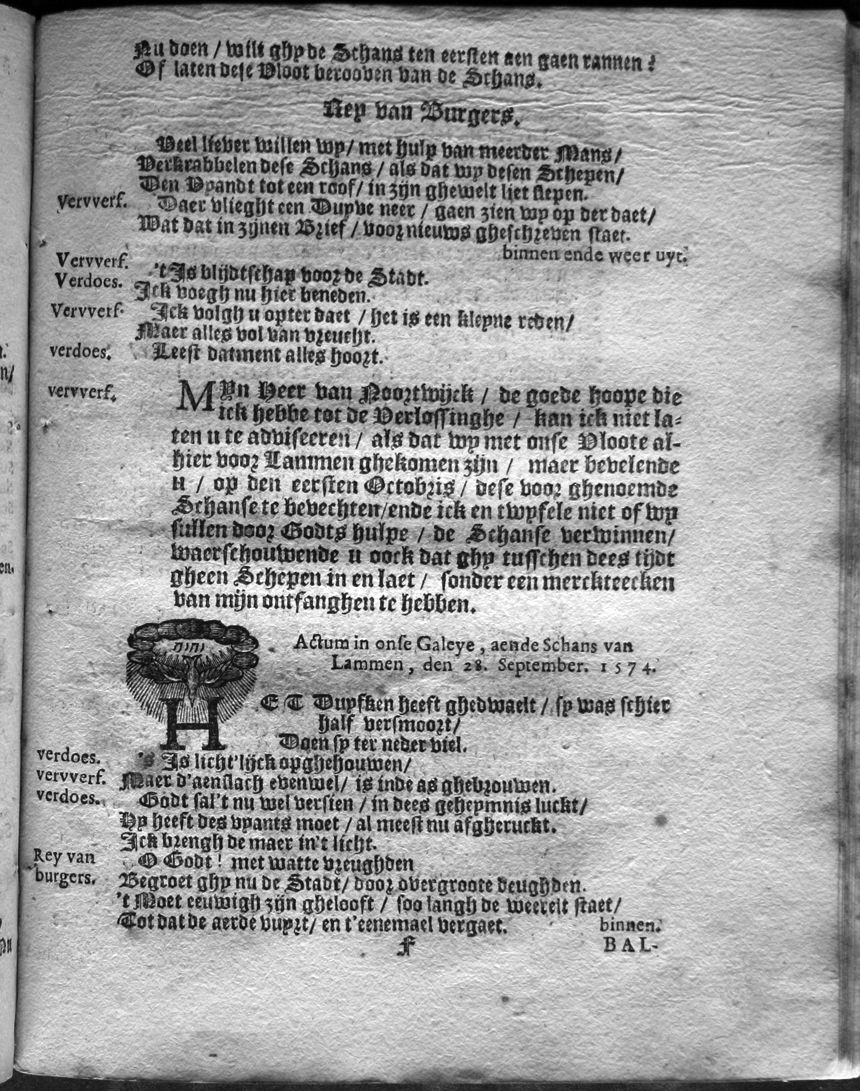 Nu doen / wilt ghy de Schans ten eersten aen gaen rannen?
Of laten dese Vloot berooven van de Schans.
Rey van Burgers.
Veel liever willen wy / met hulp van meerder Mans /
Verkrabbelen dese Schans / als dat wy desen Schepen /
Den Vyandt tot een roof / in zijn ghewelt liet slepen.
Vervverf. Daer vlieght een Duyve neer / gaen zien wy op der daet /
Wat dat in zijnen Brief / voor nieuws gheschreven staet.
binnen ende weer uyt.
Vervverf. 't Is blijdtschap voor de Stadt.
Verdoes. Ick voegh nu hier beneden.
Vervverf. Ick volgh u opter daet / het is een kleyne reden /
Maer alles vol van vreucht.
verdoes. Leest datment alles hoort.
vervverf. MYn Heer van Noortwijck / de goede hoope die
ick hebbe tot de Verlossinghe / kan ick niet la-
ten u te adviseeren / als dat wy met onse Vloote al-
hier voor Lammen ghekomen zijn / maer bevelende
U / op den eersten Octobris / dese voor ghenoemde
Schanse te bevechten / ende ick en twyfele niet of wy
sullen door Godts hulpe / de Schanse verwinnen /
waerschouwende u oock dat ghy tusschen dees tijdt
gheen Schepen in en laet / sonder een merckteecken
van mijn ontfanghen te hebben.
יהוה
Actum in onse Galeye, aende Schans van
Lammen, den 28. September. 1574.
HET Duyfken heeft ghedwaelt / sy was schier
half versmoort /
Doen sy ter neder viel.
verdoes. 's Is licht'lijck opghehouwen /
vervverf. Maer d'aenslach evenwel / is inde as ghebrouwen.
verdoes. Godt sal't nu wel versien / in dees geheymnis luckt /
Hy heeft des vyants moet / al meest nu afgheruckt.
Ick brengh de maer in't licht.
Rey van burgers. O Godt! met watte vreughden
Begroet ghy nu de Stadt / door overgroote deughden.
't Moet eeuwigh zijn ghelooft / soo langh de weerelt staet /
Tot dat de aerde vuyrt / en t'eenemael vergaet. binnen.
F BAL-